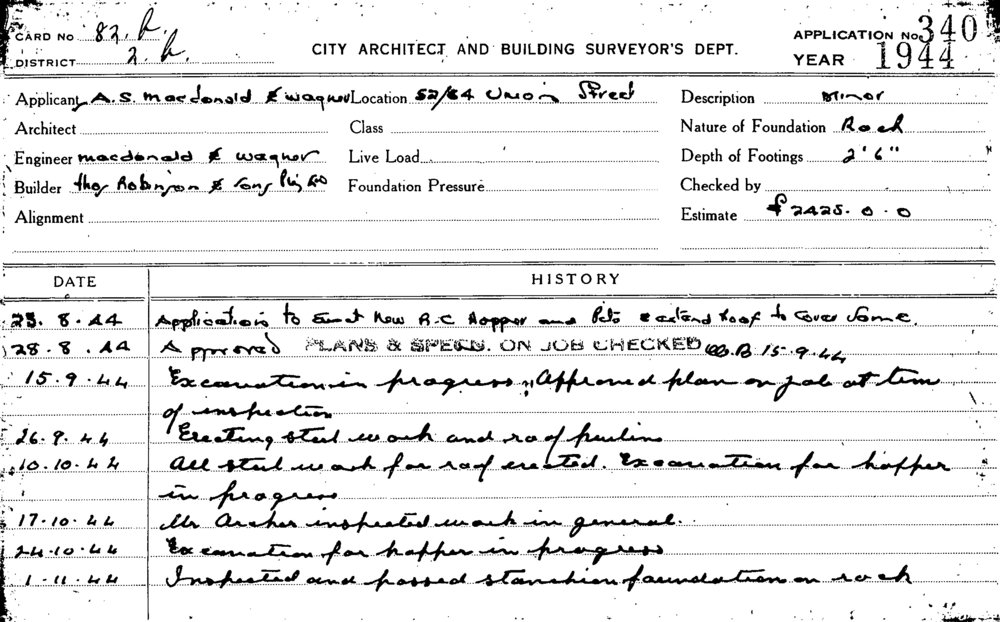 CARD No 82.A.
DISTRICT 2.A.
CITY ARCHITECT AND BUILDING SURVEYOR'S DEPT.
APPLICATION No. 340
YEAR 1944
Applicant A.S. Macdonald & Wagner Location 52/64 Union Street Description Minor
Architect Class Nature of Foundation Rock
Engineer Macdonald & Wagner Live Load Depth of Footings 2'6"
Builder Thos Robinson & Sons Pty Ltd Foundation Pressure Checked by
Alignment Estimate £2425.0.0
DATE HISTORY
23.8.44 Application to Erect New R.C Hopper and Pits & extend Roof to Cover Same.
28.8.44 Approved PLANS & SPECS. ON JOB CHECKED W.B 15.9.44
15.9.44 Excavation in progress, Approved plan on job at time
of inspection
26.9.44 Erecting steel work and roof purlins
10.10.44 All steel work for roof erected. Excavation for hopper
in progress
17.10.44 Mr Archer inspected work in general.
24.10.44 Excavation for hopper in progress
1.11.44 Inspected and passed stanchion foundation on rock